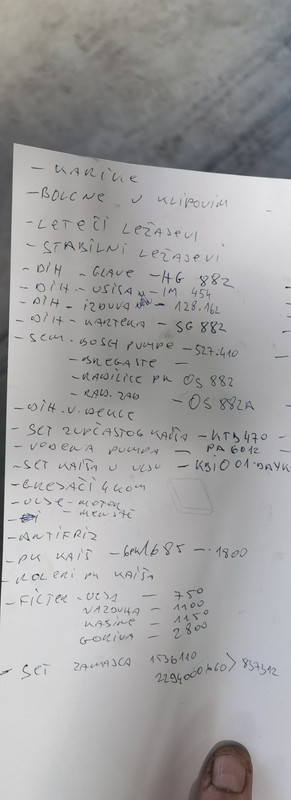 - KARIKE
- BOLCNE U KLIPOVIM
- LETEĆI LEŽAJEVI
- STABILNI LEŽAJEVI
- DIH - GLAVE - HG 882
- DIH - USISA - IM 454
- DIH - IZDUVA - 128.162
- DIH - KARTERA - SG 882
- SEM - BOSH PUMPE - 527.410
- BREGASTE -
- RADILICE PR OS 882
- RAD. ZAD - OS 882A
- DIH. V. DEKLE
- SET ZUPČASTOG KAIŠA - KTB470 -
- VODENA PUMPA - PA 6012
- SET KAIŠA U ULJU - KBIO 01.DAYK
- GREJAČI 4 KOM
- ULJE - MOTOR
- MENJAČ
- ANTIFRIZ
- PK KAIŠ - 6PK1685 - 1800
- ROLERI PK KAIŠA
- FILTER - ULJA - 750
VAZDUHA - 1100
KABINE - 1150
GORIVA - 2800
- SET ZAMAJCA 1536110
2294000860 > 837312